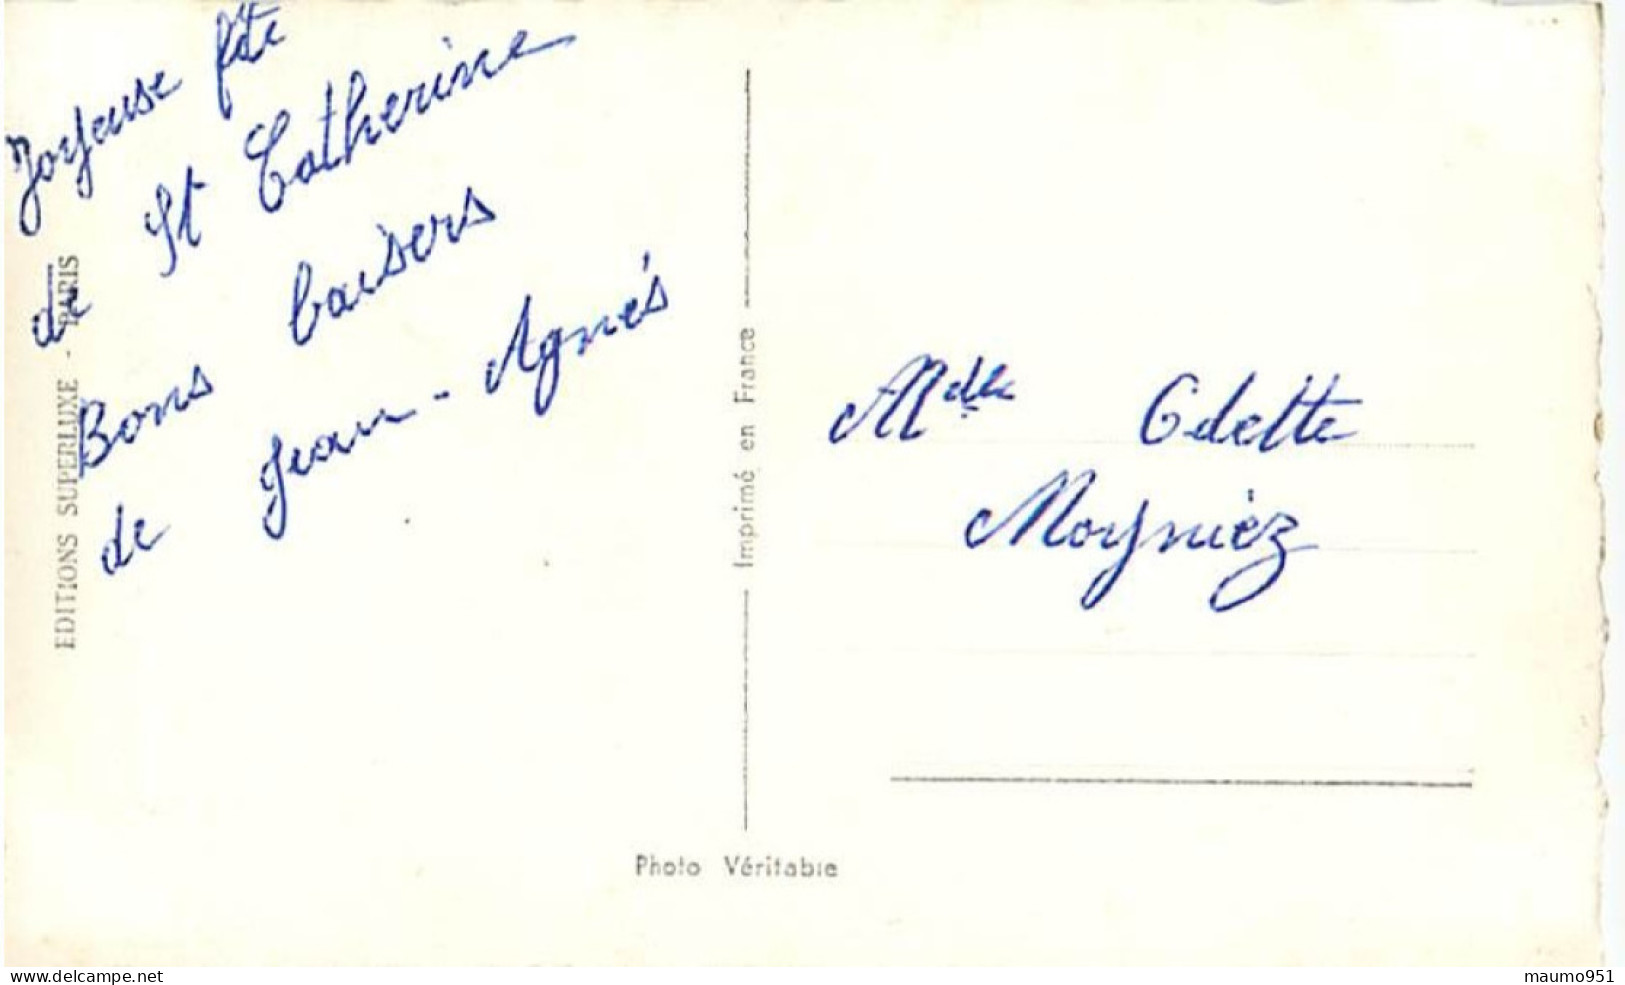 Joyeuse fête
de St Catherine
Bons baisers
de Jean - Agnés
EDITIONS SUPERLUXE - PARIS
Imprimé en France
Mdlle Odette
Moyniéz
Photo Véritable
www.delcampe.net
maumo951